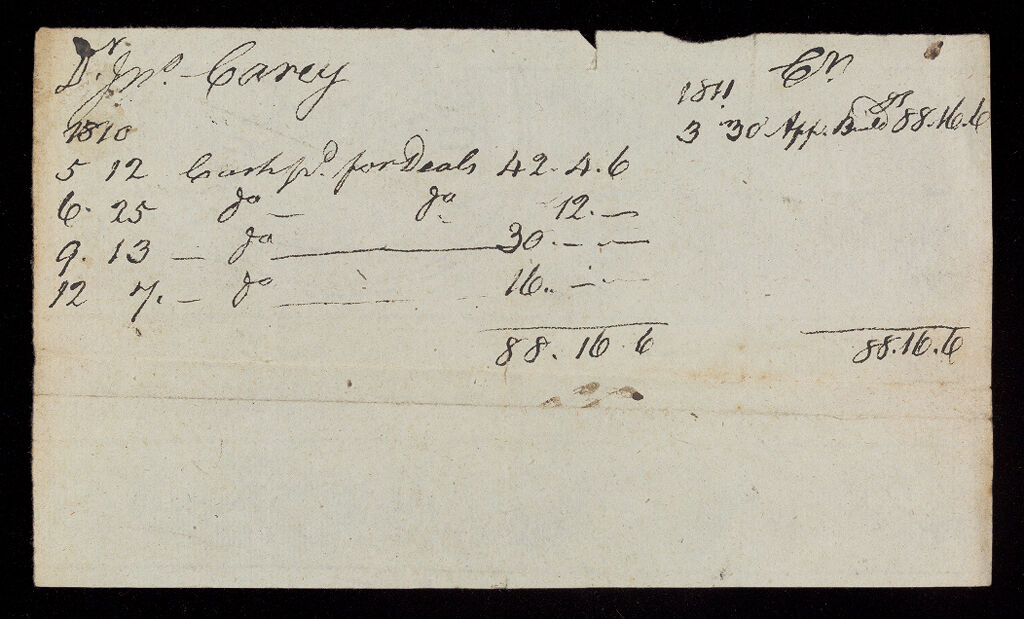 Dr. Jno. Carey Cr.
1810
1811
3 30 App. Buildgs 88.16.6
5 12 Cash pd. for Deals 42.4.6
6. 25 Do — Do 12. —
9. 13 — Do — 30. — —
12 7. — Do — 16.. — —
88.16.6 88.16.6